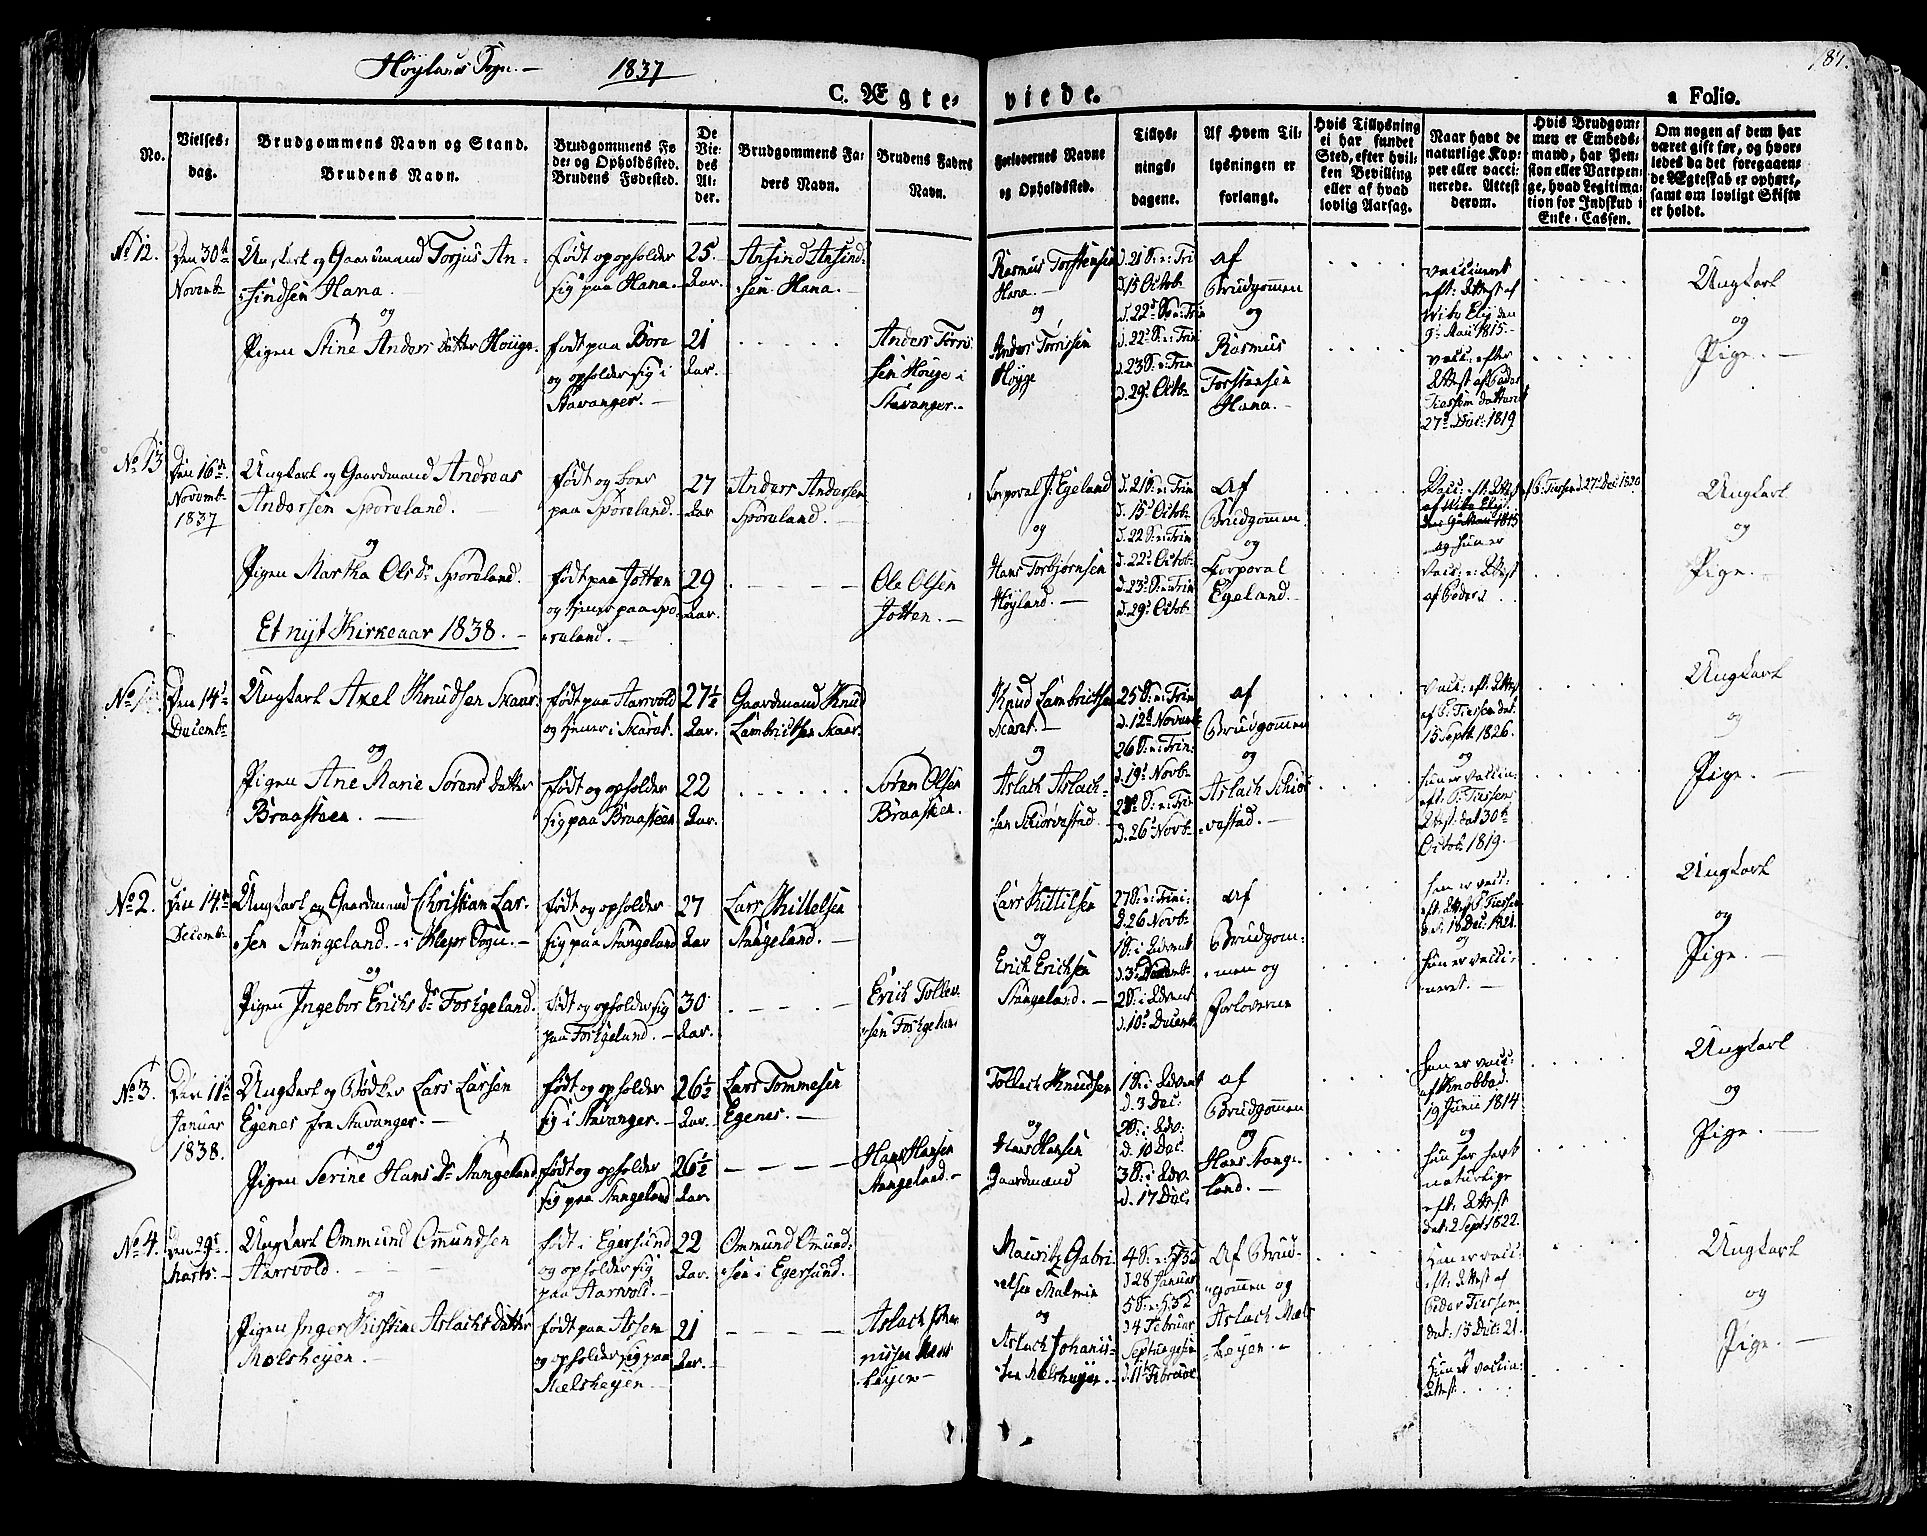 Høylands Sogn. — 1837
C. Ægte-
viede.
a Folio.
187.
No.
Vielses-
dag.
Brudgommens Navn og Stand.
Brudens Navn.
Brudgommens Fø-
de- og Opholdssted.
Brudens Fødested.
De
Vie-
des
Al-
der.
Brudgommens Fa-
ders Navn.
Brudens Faders
Navn.
Forlovernes Navne
og Opholdssted.
Tillys-
nings-
dagene.
Af Hvem Til-
lysningen er
forlangt.
Hvis Tillysning
ei har fundet
Sted, efter hvil-
ken Bevilling
eller af hvad
lovlig Aarsag.
Naar havt de
naturlige Kop-
per eller vacci-
nerede. Attest
derom.
Hvis Brudgom-
men er Embeds-
mand, har Pen-
sion eller Vartpen-
ge, hvad Legitima-
tion for Indskud i
Enke-Cassen.
Om nogen af dem har
været gift før, og hvor-
ledes da det foregaaen-
de Ægteskab er ophørt,
samt om lovligt Skifte
er holdt.
No 12.
Den 30te
Novembr
Ungkarl og Gaardmand Torjus An-
sindsen Hana.
og
Pigen Stine Anders datter Houge.
Født opholder
sig paa Hana.
født paa Bore
og opholder sig i
Stavanger. —
25.
Aar.
21
Aar.
Ansind Ansind-
sen Hana. —
Anders Torris
sen Houge i
Stavanger. -
Rasmus Torstensen
Hana. —
og
Anders Torrissen
Høyge
d. 21 S: e: Tri
d. 15 Octob:
d. 22 S: e: Trin
d. 22 S: e: Trin
d. 23 S: e: Trin
d. 29 Octb:
af
Brudgommen
og
Rasmus
Torstensen
Hana. —
vaccineret
eft: Attest af
Wibe Elig den
9: Mai 1815.-
vacc: efter
Attest af Peder
Tiessen datteret
27de Dec: 1819
Ungkarl
og
Pige. —
No 13
Den 16de
Novemb:
1837
Ungkarl og Gaardmand Andreas
Andersen Sporaland.
og
Pigen Martha Ols Dr Sporaland.
Født og boer
paa Sporaland.
født paa Jotten
og tjener paa Spo
raland. —
27
Aar
29
Aar.
Anders Andersen
Sporaland. —
Ole Olsen
Jotten. —
Corporal J. Egeland
og
Hans Torbjørnsen
Høyland. —
d. 21 S: e: Trin
d. 15 Octob:
d. 22 S: e: Trin
d. 22 Octob:
d. 23 S: e: Trin
d. 29 Octob:
Af
Brudgommen
og
Corporal
Egeland.
Vacc: eft: Attest
og hun er
Vacc: e: Attest
af Peder
P: Tiessen d. 27 Dec 1820
Ungkarl
og
Pige.
Et nyt Kirkeaar 1838. —
No 1.
Den 14de
Decembr
Ungkarl Axel Knudsen Skaar
og
Pigen Ane Marie Sørens datter
Braasteen. —
født paa Aarvold
og tjener i Skaret.
født og opholder
sig paa Braasteen
27½
Aar.
22
Aar.
Gaardmand Knud
Lambrictsen Skaar.
Søren Olsen
Braasteen.
Knud Lambrictsen
Skaret. —
og
Aslach Aslach-
sen Schiørvestad.
25 S: e: Trin
d. 12 Novemb
26 S: e: Trin:
d. 19 Novb:
d. 26 Novb:
af
Brudgommen
og
Aslach Schiør-
vestad. —
Vacc: eft: Attest
af P. Tiessen dat.
15 Septb 1826.
og
hun er vaccin:
eft: P: Tiessens
Attest: dat 30te
Octob: 1819.
Ungkarl
og
Pige. —
No 2.
Den 14de
Decemb:
Ungkarl og Gaardmand Christian Lar-
sen Stangeland. - i Klepe Sogn. —
og
Pigen Ingebor Erichs Dr Foskgeland.
Født og opholder
sig paa Stangeland
Født og opholder sig
paa Foskgeland. —
27
Aar
30
Aar.
Lars Kittelsen
Stangeland. —
Erich Tollev-
sen Foskgelan.
Lars Kittilsen
og
Erich Erichsen
Stangeland. —
27 S: e: Trini:
d. 26 Novb:
1 S: i Advent
d. 3 Decemb:
2 S: i Advent
d. 10 Decemb
af
Brudgom-
men og
Forloveren
han er vacc:
eft. Attest P Tiessen
d. 18 Dec: 1821.
og
hun er vacci-
neret. —
Ungkarl
og
Pige. —
No 3.
Den 11te
Januar
1838.
Ungkarl og Bødker Lars Larsen
Egenes fra Stavanger. —
og
Pigen Serine Hans Dr Stangeland
født og opholder
sig i Stavanger. —
født og opholder
sig paa Stangeland
26½
Aar.
26½
Aar.
Lars Tommesen
Egenes. —
Hans Hansen
Stangeland. —
Tollach Knudsen
og
Hans Hansen
Gaardmænd
1 S: i Advent
d. 3 Dec:
2 S: i Adv:
d. 10 Dec.
3 S: i Adv.
d. 17 Dec.
af
Brudgommen
og
Hans Stange-
land. —
han er vacc:
af Knobba d.
19 Junii 1814
og
hun har havt
naturlige
eft. Attest
dat: 2 Sept 1822.
Ungkarl
og
Pige. —
No 4.
Den 29de
Marts. —
Ungkarl Ommund Omundsen
Aarrvold.
og
Pigen Inger Kirstine Aslachs datter
Mælsheyen.
født i Egersund
og opholder sig
paa Aarvold. —
født paa Assen
og opholder sig paa
Mælsheyen
22
Aar.
21
Aar.
Ommund Omund-
sen i Egersund.
Aslach Joha-
nissen Mæls
heyen —
Mauritz Gabri-
elsen Malmin
og
Aslach Johanis-
sen Mælsheyen. —
d. 28 Januar
d. 4 Februar
Septuagesin
d. 11te Februar
Af Brud-
gommen og
Aslach Mæls
heyen. —
han er vacc:
eft: Attest af
Peder Tiessen
dat: 15 Dec: 21.
og
hun er vaccin:
Attest.
Ungkarl
og
Pige. —